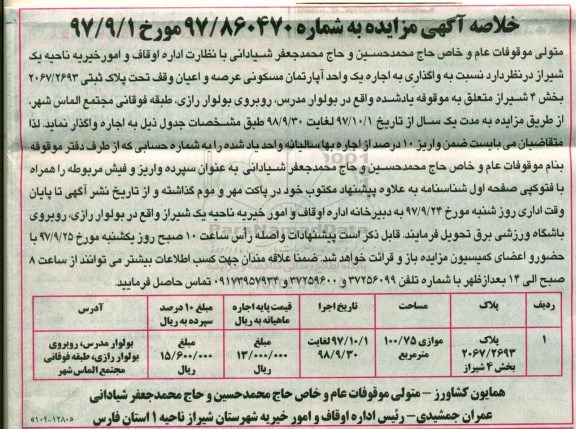 خلاصه آگهی مزایده به شماره ۹۷/۸۶۰۴۷۰ مورخ ۹۷/۹/۱
متولی موقوفات عام و خاص حاج محمدحسین و حاج محمدجعفر شیادانی با نظارت اداره اوقاف و امور خیریه ناحیه یک
شیراز در نظر دارد نسبت به واگذاری به اجاره یک واحد آپارتمان مسکونی عرصه و اعیان وقف تحت پلاک ثبتی ۲۰۶۷/۲۶۹۳
بخش ۴ شیراز متعلق به موقوفه یادشده واقع در بولوار مدرس، روبروی بولوار رازی، طبقه فوقانی مجتمع الماس شهر،
از طریق مزایده به مدت یک سال از تاریخ ۹۷/۱۰/۱ لغایت ۹۸/۹/۳۰ طبق مشخصات جدول ذیل به اجاره واگذار نماید. لذا
متقاضیان می بایست ضمن واریز ۱۰ درصد از اجاره بها سالیانه واحد یاد شده را به شماره حسابی که از طرف دفتر موقوفه
بنام موقوفات عام و خاص حاج محمدحسین و حاج محمدجعفر شیادانی به عنوان سپرده واریز و فیش مربوطه را همراه
با فتوکپی صفحه اول شناسنامه به علاوه پیشنهاد مکتوب خود در پاکت مهر و موم گذاشته و از تاریخ نشر آگهی تا پایان
وقت اداری روز شنبه مورخ ۹۷/۹/۲۴ به دبیرخانه اداره اوقاف و امور خیریه ناحیه یک شیراز واقع در بولوار رازی، روبروی
باشگاه ورزشی برق تحویل فرمایند. قابل ذکر است پیشنهادات واصله رأس ساعت ۱۰ صبح روز یکشنبه مورخ ۹۷/۹/۲۵ با
حضور و اعضای کمیسیون مزایده باز و قرائت خواهد شد. ضمنا علاقه مندان جهت کسب اطلاعات بیشتر می توانند از ساعت ۸
صبح الی ۱۴ بعدازظهر با شماره تلفن ۳۷۲۵۶۰۹۹ و ۳۷۲۵۹۶۰۰ و ۰۹۱۷۳۹۵۷۹۳۳ تماس حاصل فرمایید.
ردیف پلاک مساحت تاریخ اجرا قیمت پایه اجاره ماهیانه به ریال مبلغ ۱۰ درصد سپرده به ریال آدرس
۱ پلاک ۲۰۶۷/۲۶۹۳ بخش ۴ شیراز موازی ۱۰۰/۷۵ مترمربع ۹۷/۱۰/۱ لغایت ۹۸/۹/۳۰ مبلغ ۱۳/۰۰۰/۰۰۰ ریال مبلغ ۱۵/۶۰۰/۰۰۰ ریال بولوار مدرس، روبروی بولوار رازی، طبقه فوقانی مجتمع الماس شهر
همایون کشاورز – متولی موقوفات عام و خاص حاج محمدحسین و حاج محمدجعفر شیادانی
عمران جمشیدی – رئیس اداره اوقاف و امور خیریه شهرستان شیراز ناحیه ۱ استان فارس
«۱۰۹-۱۲۸۰»